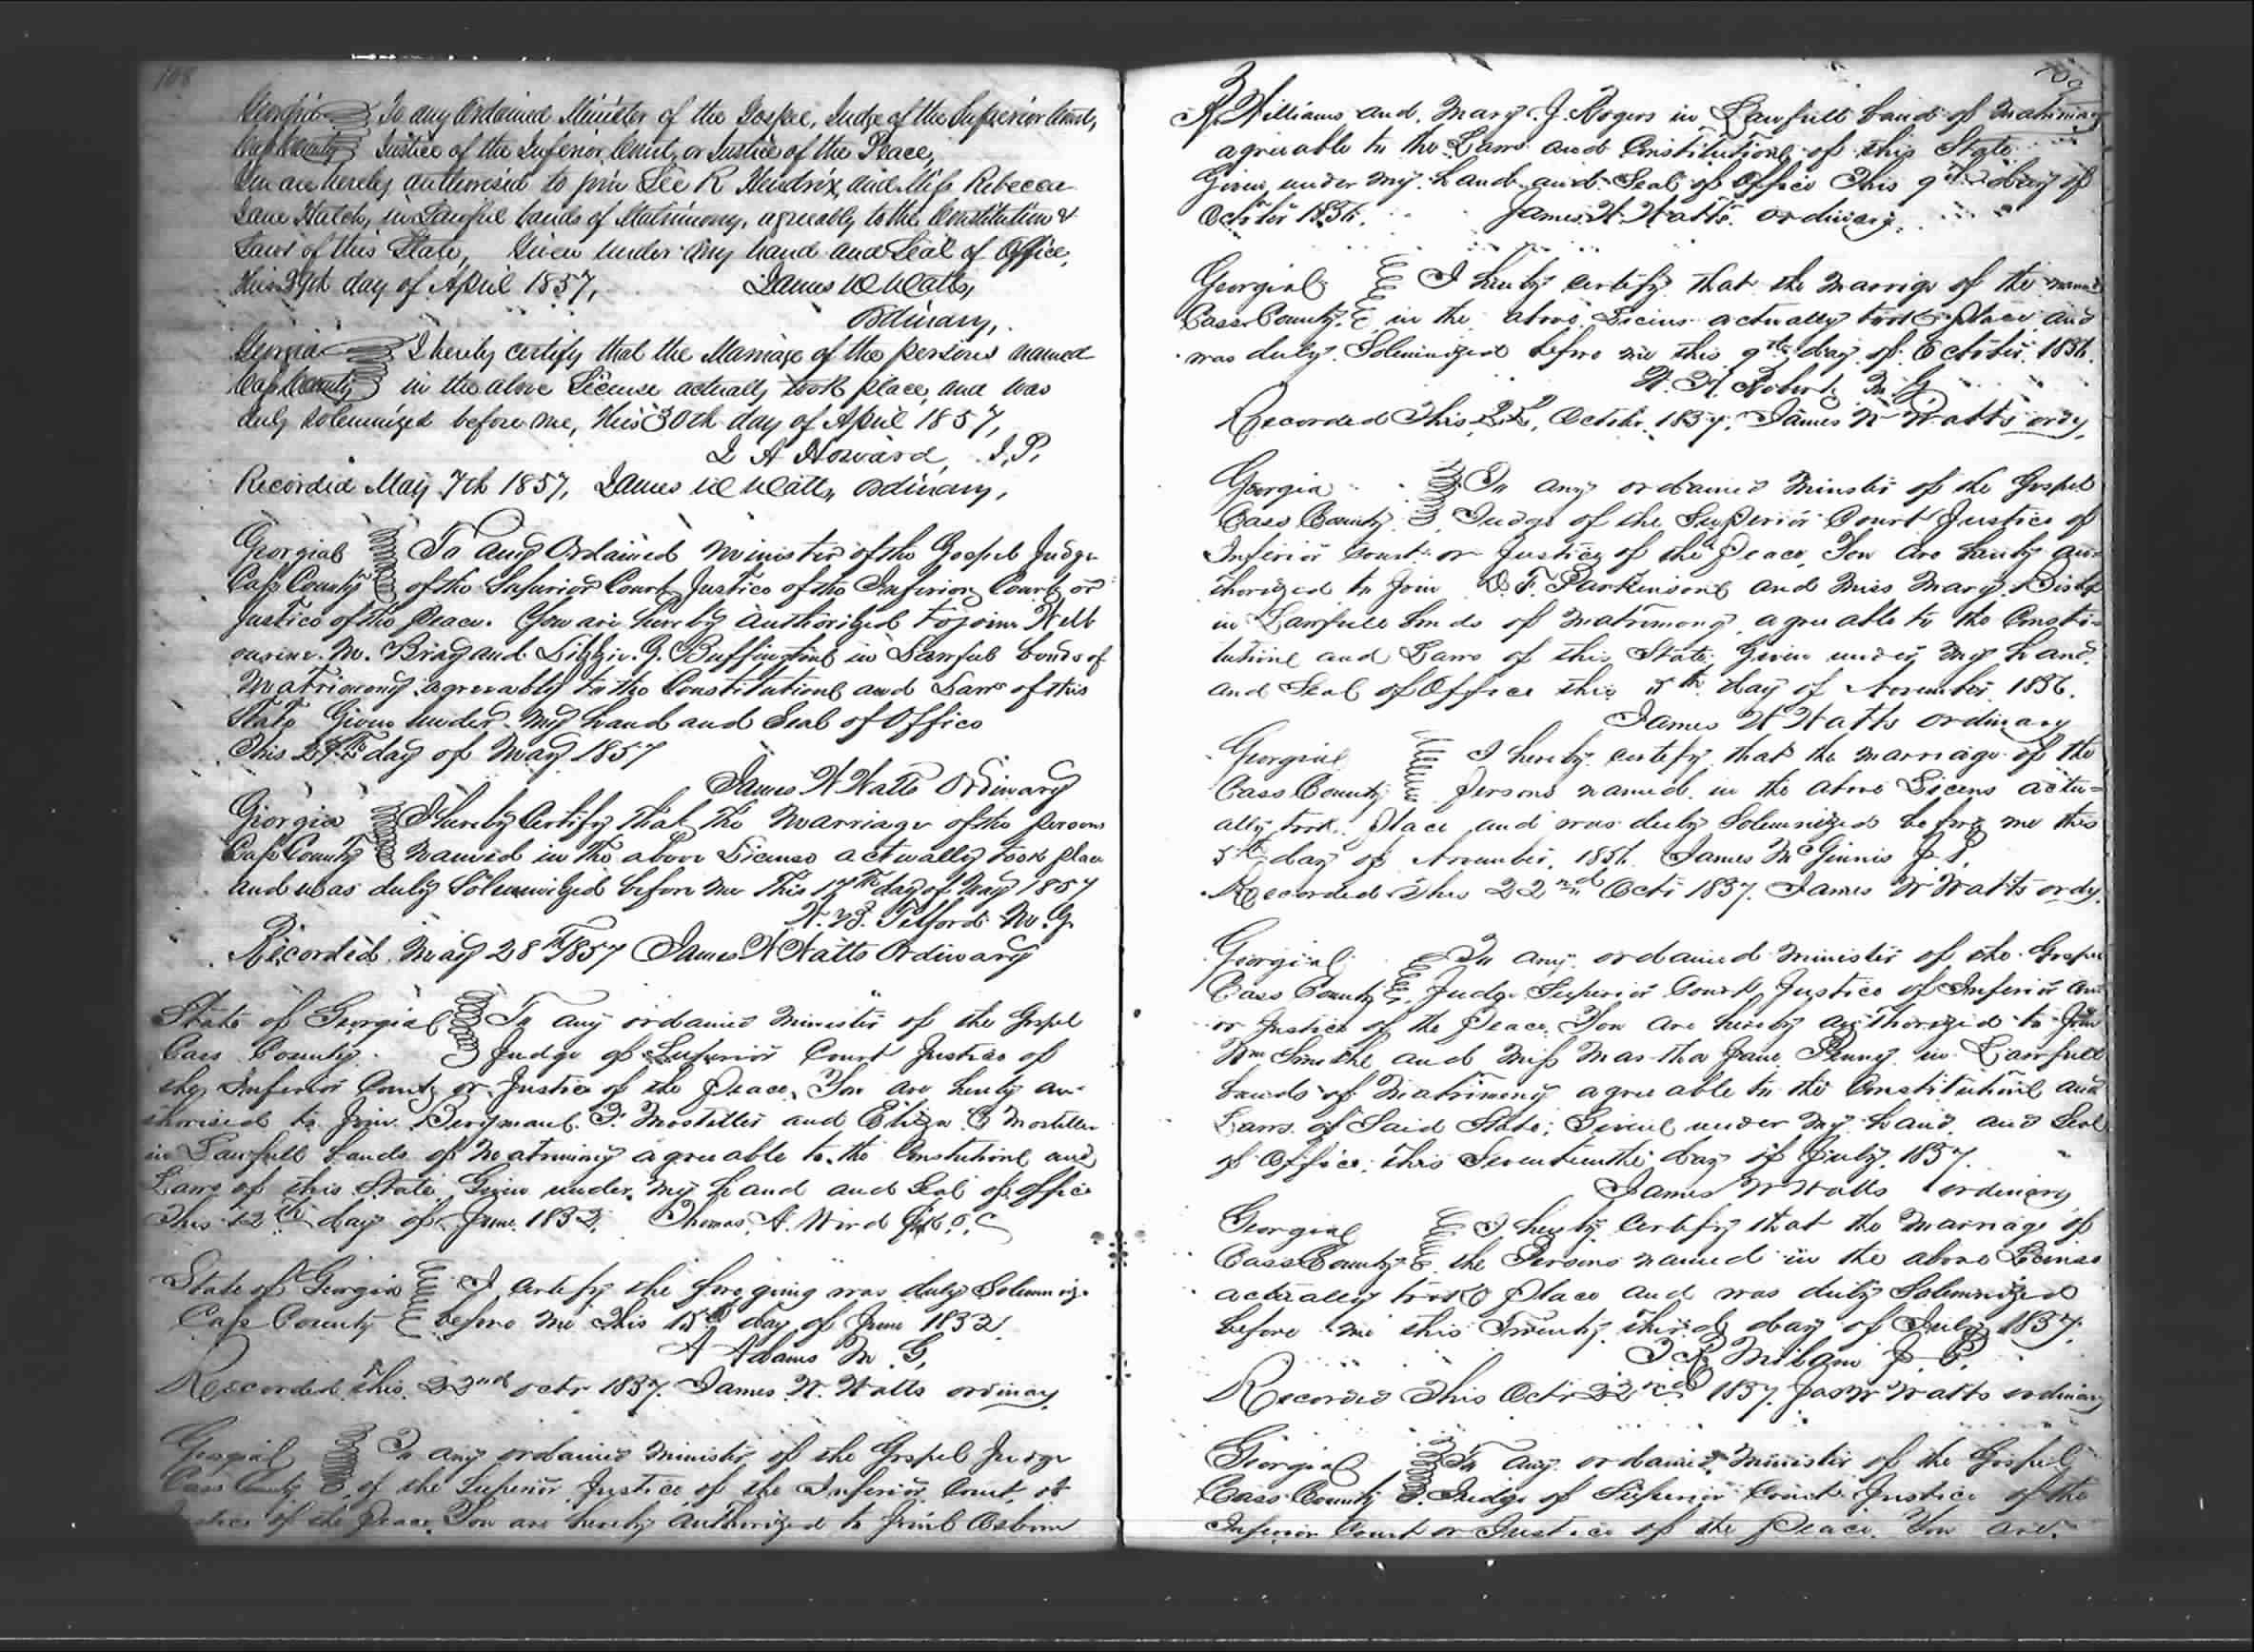 108
Georgia To any Ordained Minister of the Gospel, Judge of the Superior Court,
Cass County Justice of the Inferior Court, or Justice of the Peace,
You are hereby authorised to join Lee R Hendrix, and Miss Rebecca
Jane Hatch, in Lawful bands of Matrimony, agreeably to the Constitution &
Laws of this State, Given under my hand and Seal of Office,
this 29th day of April 1857, James W Watts,
Ordinary,
Georgia I hereby certify that the Marriage of the persons named
Cass County in the above License actually took place, and was
duly solemnized before me, this 30th day of April 1857,
A Howard, J.P.
Recorded May 7th 1857, James W Watts, Ordinary,
Georgia To any Ordained Minister of the Gospel Judge
Cass County of the Superior Court Justice of the Inferior Court or
Justice of the Peace. You are hereby authorized to join
M. Bray and Lizzie. G. Buffington in Lawful bonds of
Matrimony agreeably to the Constitution and Laws of this
State Given under my hand and Seal of Office
This day of May 1857
James W Watts Ordinary
Georgia I hereby Certify that the Marriage of the persons
Cass County named in the above License actually took place
and was duly Solemnized before me This 17th day of May 1857
W. B. Telford M. G.
Recorded May 28th 1857 James W Watts Ordinary
State of Georgia To any ordained minister of the Gospel
Cass County. Judge of Superior Court Justice of
the Inferior Court, or Justice of the Peace, You are hereby au-
thorised to Join Berymane F. Mosteller and Eliza C Mosteller
in Lawfull bands of Matrimony agreeable to the Constitution and
Laws of this State Given under my hand and Seal of office
This 12th day of June 1832. Thomas A. Word C. C.
State of Georgia I certify the foregoing was duly Solemniz-
Cass County before me This 15th day of June 1832
A Adams M G,
Recorded this 22nd octr 1857. James W. Watts ordinary
Georgia To any ordained minister of the Gospel Judge
Cass County of the Superior Justice of the Inferior Court, or
Justice of the Peace, You are hereby Authorized to Joine Osborn
109
R Williams and Mary. J. Rogers in Lawfull bands of matrimony
agreeable to the Laws and Constitution of this State
Given under my hand and Seal of Office This 9th day of
October 1856. James W. Watts ordinary.
Georgia I hereby certify that the marrige of the
Cass County. in the above Licens actually took place and
was duly Solemnized before me this 9th day of October 1856.
Roberts M. G
Recorded This 22, October 1857. James W Watts ordy,
Georgia To any ordained minster of the Gospel
Cass County Judge of the Superior Court Justice of
Inferior Court or Justice of the Peace, You are hereby au-
thorized to Join D. F. Parkinson and Miss Mary
in Lawfull bonds of matrimony agreeable to the Consti-
tutione and Laws of this State, Given under my hand
and Seal of Office this 5th day of November 1856.
James W Watts ordinary
Georgia I hereby certify that the marriage of the
Cass County persons named in the above Licens actu-
ally took place and was duly Solemnized before me this
5th day of November 1856 James McGinnis J. P.
Recorded This 22nd Octr 1857. James W Watts ordy.
Georgia To any ordained minister of the Gospel
Cass County Judge Superior Court, Justice of Inferior
or Justice of the Peace. You are hereby authorized to Join
Wm Smithe and Miss Martha Jane Penny in Lawfull
bands of Matrimony agreeable to the Constitution and
Laws of Said State; Given under my hand and Seal
of Office. this Seventeenthe day of July. 1857.
James W Watts ordinary
Georgia I hereby Certify that the Marriage of
Cass County the Persons named in the above License
actually took place and was duly Solemnized
before me this Twenty third day of July 1857.
Milam J. P.
Recorded This Octr 22nd 1857. Jas W Watts ordinary
Georgia To any ordained Minister of the Gospel
Cass County Judge of Superior Court Justice of the
Inferior Court or Justice of the Peace. You are